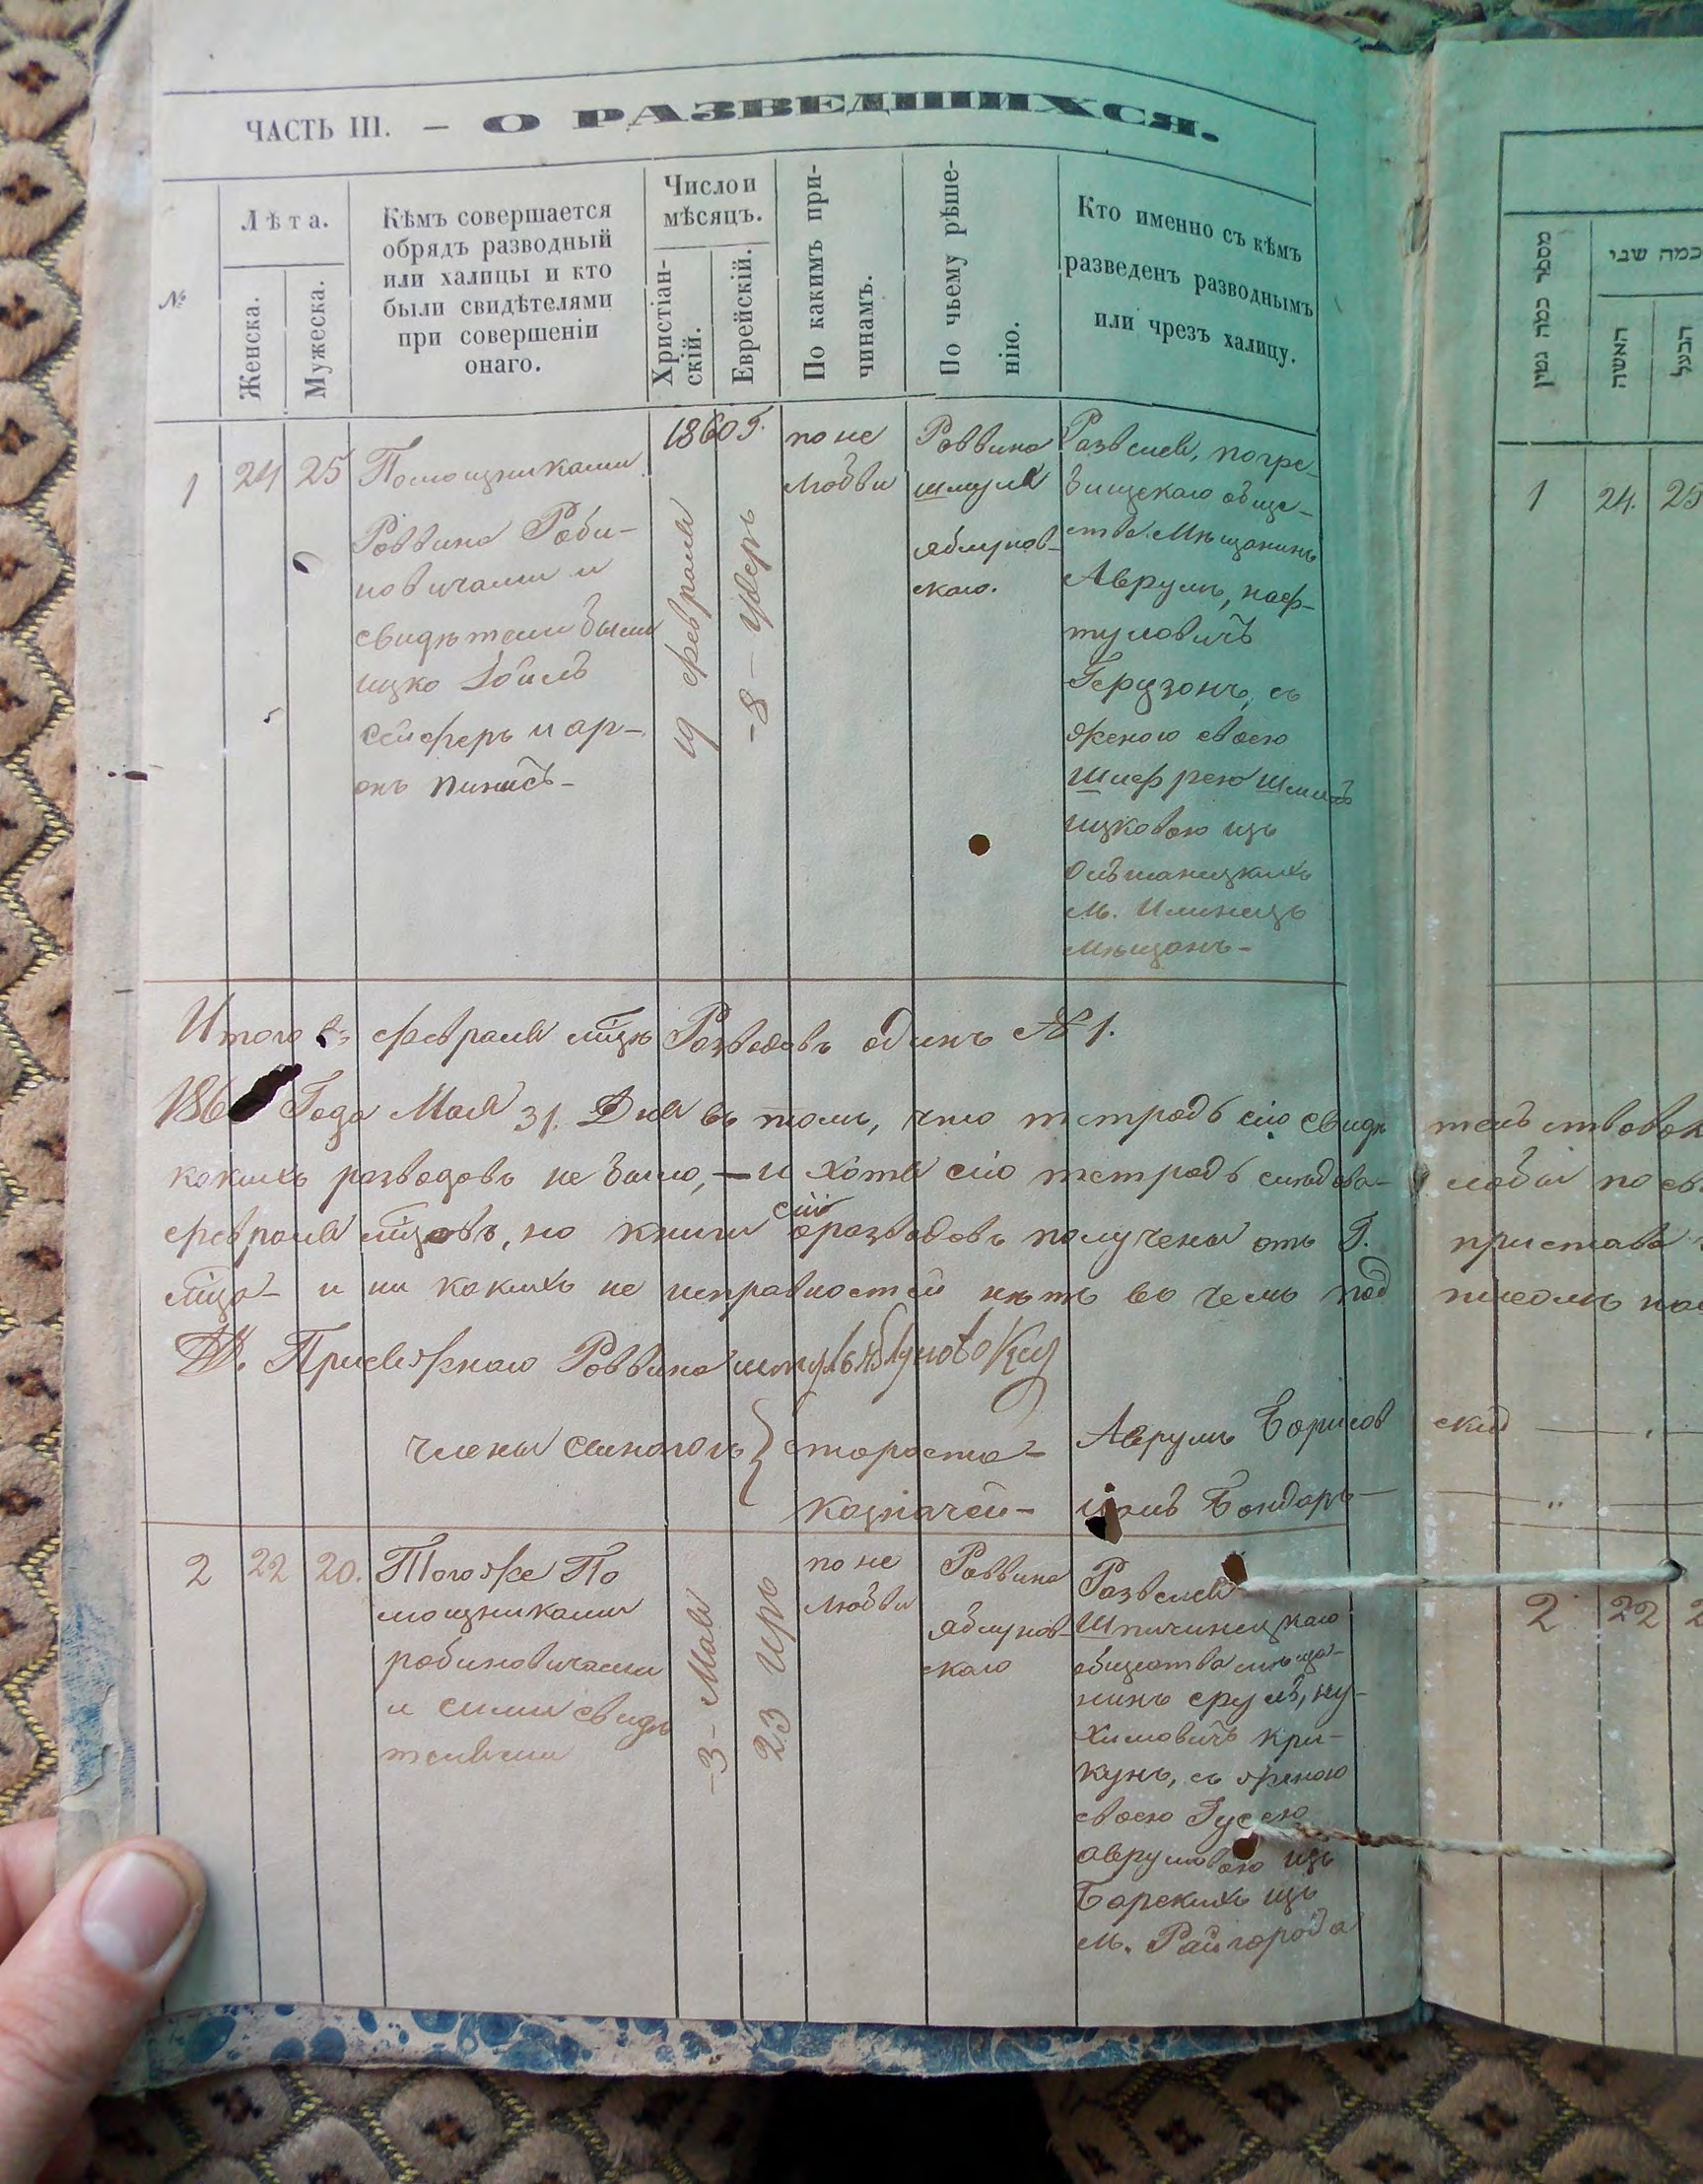 ЧАСТЬ III. — О РАЗВЕДШИХСЯ.
№
Лѣта.
Женска.
Мужеска.
Кѣмъ совершается
обрядъ разводный
или халицы и кто
были свидѣтелями
при совершеніи
онаго.
Число и
мѣсяцъ.
Христіан-
скій.
Еврейскій.
По какимъ при-
чинамъ.
По чьему рѣше-
нію.
Кто именно съ кѣмъ
разведенъ разводнымъ
или чрезъ халицу.
1
24
25
Помощниками
Раввина Раби-
новичами и
свидѣтели были
ицко
Сейферъ и ар-
онъ
1860 г.
19 февраля
-8- удеръ
по не
любви
Раввина
шмуля
яблунов-
скаго.
Развелся, погре-
бищскаго обще-
ства Мѣщанинъ
Аврумъ, наф-
туловичъ
Герцзонъ, съ
женою своею
Шифрею
ицковою изъ
Ольшаницкихъ
м. Илинецъ
мѣщанъ-
Итого въ февралѣ мцѣ Разводовъ одинъ № 1.
186 Года Мая 31. Дня въ томъ, что тетрадь сію свидѣтельствован
какихъ разводовъ не было, — и хотя сію тетрадь слѣдова-
февраля мцовъ, но книги сіи оразводовъ получены отъ Г. пристава
мца- и ни какихъ не исправностей нѣтъ во чемъ подписомъ
Присяжнаго Раввина шмуль яблуновскій
члены синогогъ } староста- Аврумъ Борисовскій
казначей- Бондарь-
2
22
20.
Тогоже По
мощниками
рабиновичами
и сими свидѣ
телями
-3- Мая
23 иръ
по не
любви
Раввина
яблунов-
скаго
Развелся
Шпичинецкаго
общества мѣща-
нинъ сруль, ну-
химовичъ кри-
кунъ, съ женою
своею Гусею
аврумовою изъ
Барскихъ изъ
м. Райгорода
מספר כמה גטין
כמה שני
האשה
הבעל
1
24.
25
2
22